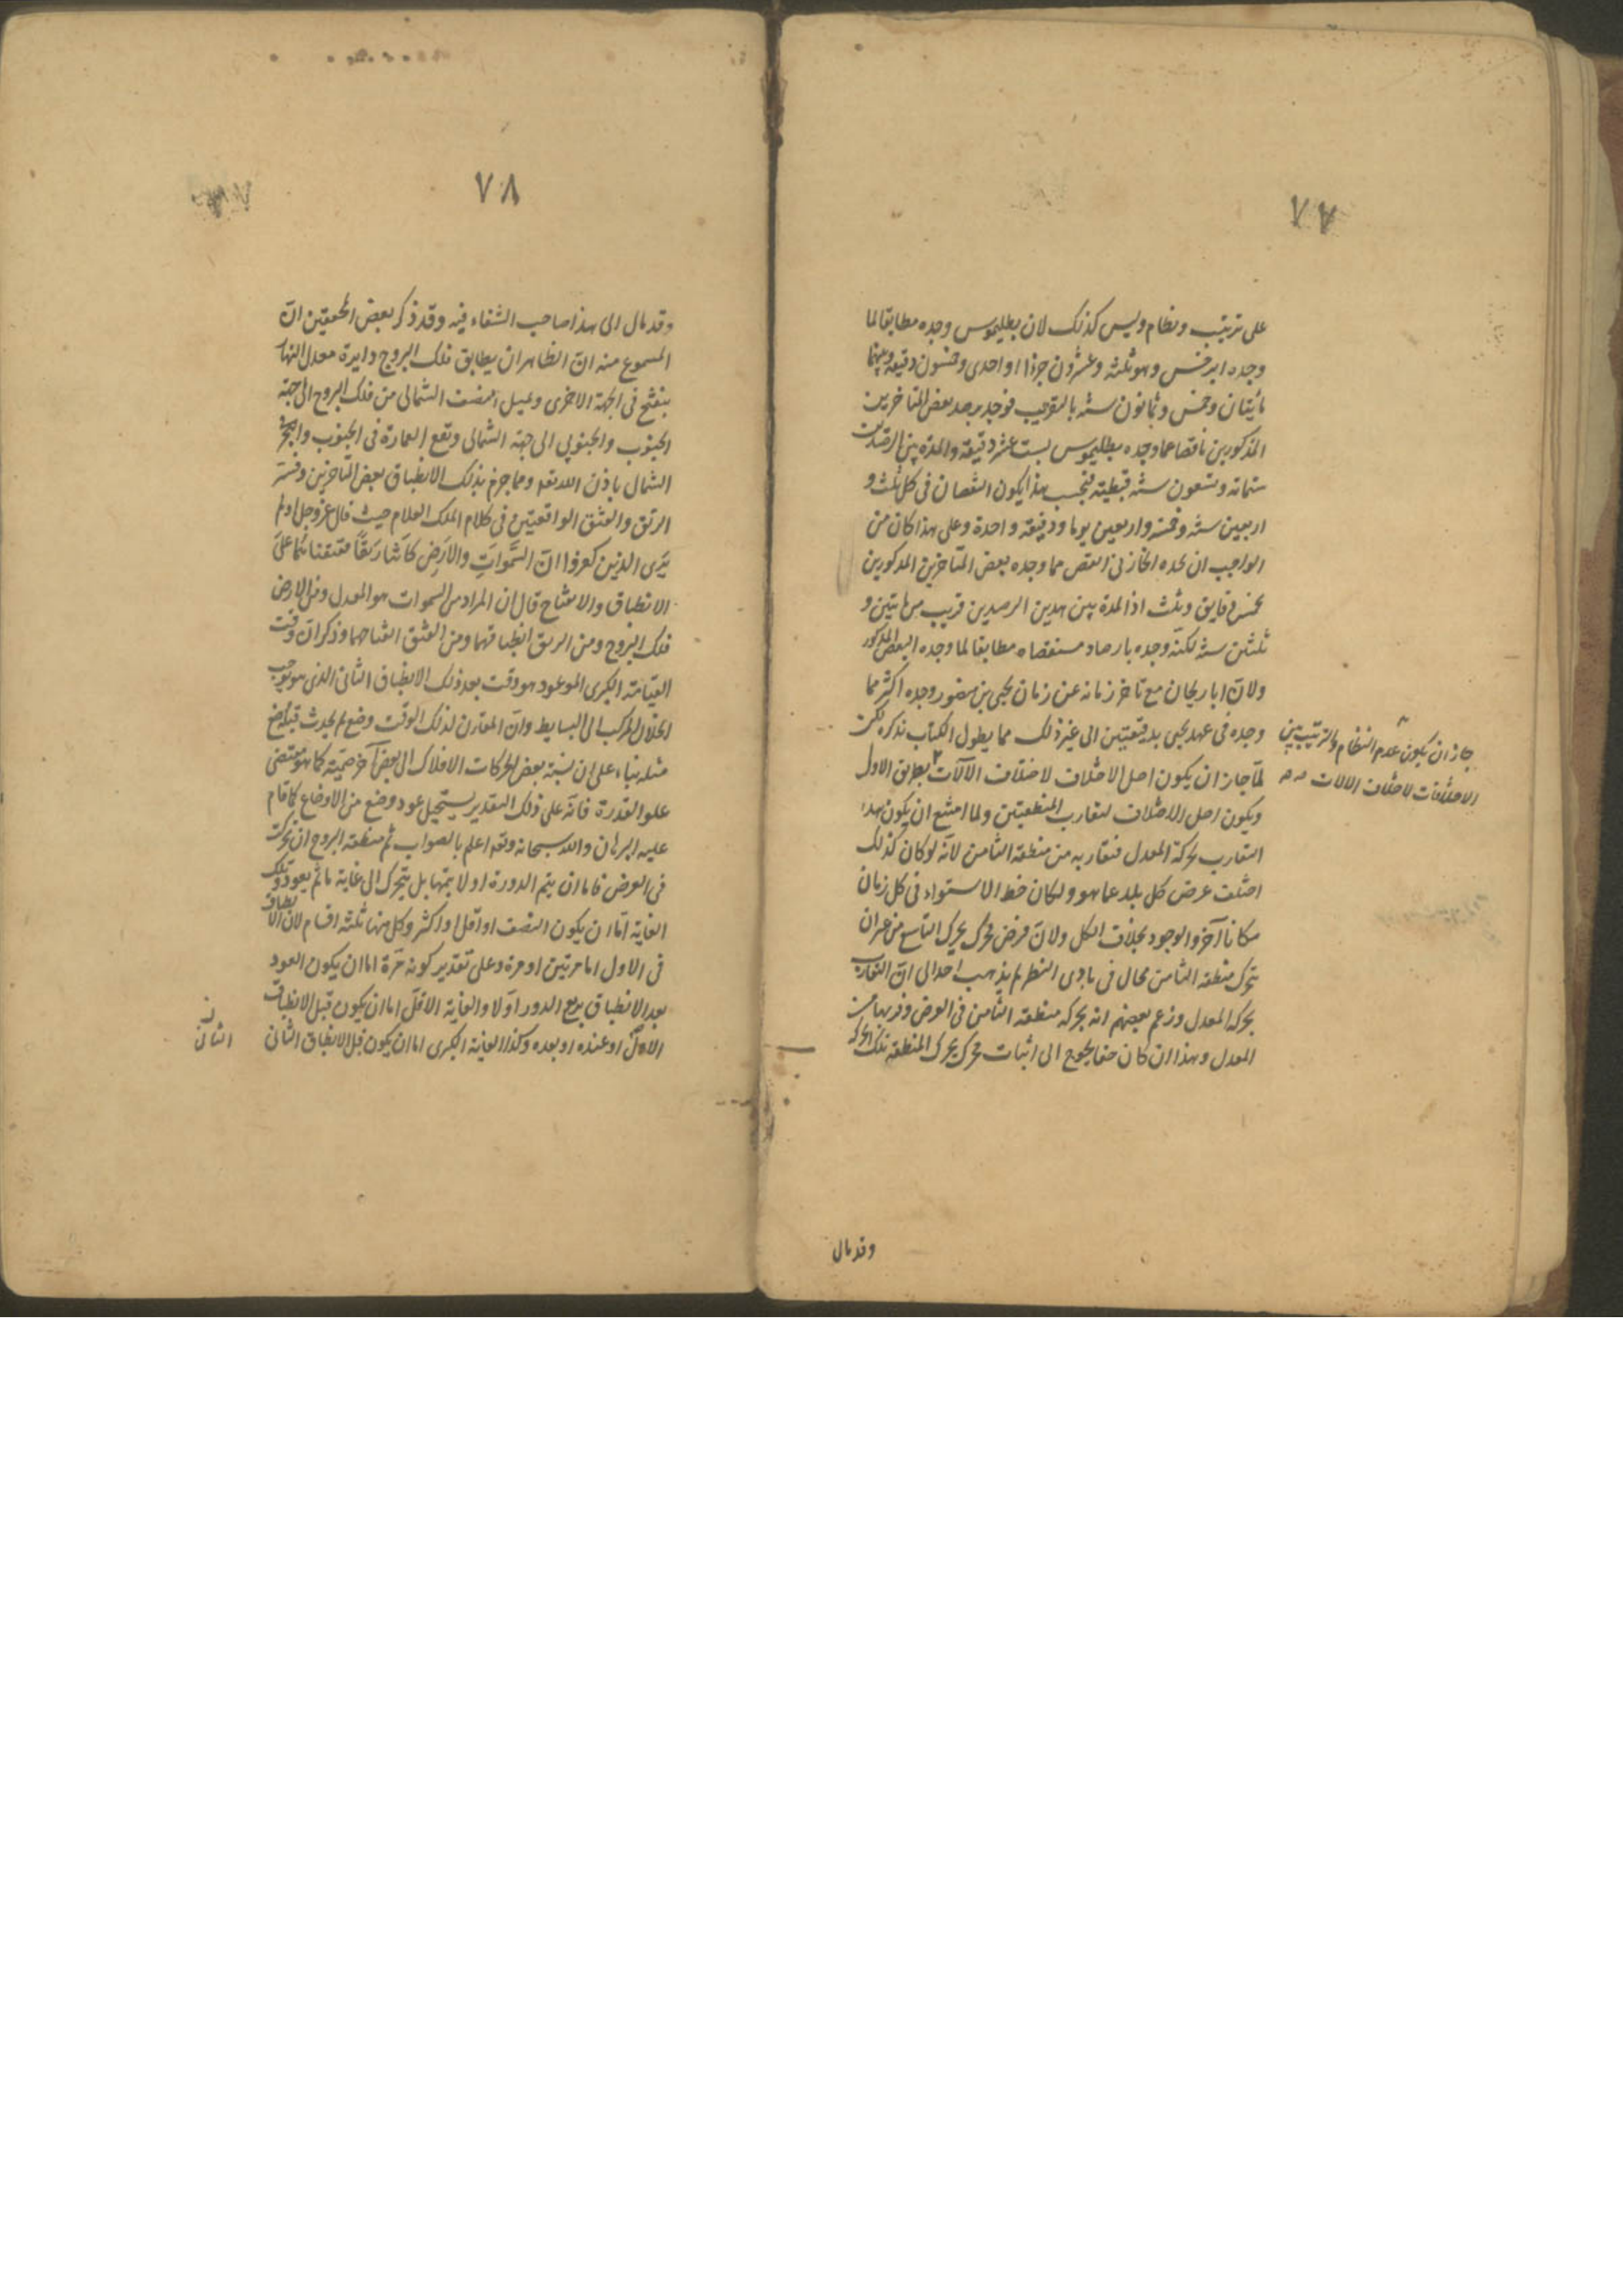 ٧٧
على ترتيب ونظام وليس كذلك لان بطليموس وجده مطابقا لما
وجده ابرخس وهو ثلثه وعشرون جزءا واحدى وخمسون دقيقه وبينهما
مائتان وخمس وثمانون سنه بالتقريب فوجد برصد بعض المتاخرين
المذكورين ناقصا عما وجده بطليموس بست عشر دقيقه والمدة بين الرصدين
ستمائه وتسعون سنه قبطيه فبحسب هذا يكون النقصان فى كل ثلث و
اربعين سنه وخمسة واربعين يوما ودقيقه واحدة وعلى هذا كان من
الواجب ان يجده الخازنى انقص مما وجده بعض المتاخرين المذكورين
بخمس دقايق وثلث اذ المدة بين هذين الرصدين قريب من مايتين و
ثلثين سنه لكنه وجده بارصاد مستقصاه مطابقا لما وجده البعض المذكور
ولان ابا ريحان مع تاخر زمانه عن زمان يحيى بن منصور وجده اكثر مما
وجده فى عهد يحيى بدقيقتين الى غير ذلك مما يطول الكتاب بذكره لكن
لما جاز ان يكون اصل الاختلاف لاختلاف الآلات بطريق الاول
ويكون اصل الاختلاف لتقارب المنطقتين ولما امتنع ان يكون هذا
التقارب بحركة المعدل فتقاربه من منطقة الثامن لانه لو كان كذلك
اختلف عرض كل بلد عما هو ولكان خط الاستواء فى كل زمان
مكانا آخر والوجود بخلاف الكل ولان فرض محرك يحرك التاسع من غير ان
يتحرك منطقة الثامن محال فى بادى النظر لم يذهب احد الى ان التقارب
بحركة المعدل وزعم بعضهم انه بحركه منطقة الثامن فى العرض وقربها من
المعدل وهذا ان كان حقا يحوج الى اثبات محرك يحرك المنطقه تلك الحركه
جاز ان يكون عدم النظام والترتيب بين
الاختلافات لاختلاف الالات
وقد مال
٧٨
وقد مال الى هذا صاحب الشفاء فيه وقد ذكر بعض المحققين ان
المسموع منه ان الظاهر ان يطابق فلك البروج دايرة معدل النهار
ينفتح فى الجهة الاخرى ويميل النصف الشمالى من فلك البروج الى جهة
الجنوب والجنوبى الى جهة الشمالى ويقع العمارة فى الجنوب والبحر فى
الشمال باذن الله تعه ومما جزم بذلك الانطباق بعض المتاخرين وفسر
الرتق والفتق الواقعين فى كلام الملك العلام حيث قال عز وجل اولم
يَرَى الذين كفروا انّ السَّمواتِ والارَضِ كانَتَا رَتقًا ففتقناهُمَا على
الانطباق والانفتاح قال ان المراد من السموات هو المعدل ومن الارض
فلك البروج ومن الرتق انطباقهما ومن الفتق انفتاحهما وذكر ان وقت
القيامة الكبرى الموعود هو وقت بعد ذلك الانطباق الثانى الذى هو يوجب
انحلال المركب الى البسايط وان المقارن لذلك الوقت وضع لم يحدث قبله وضع
مثله بناء على ان نسبة بعض الحركات الافلاك الى بعض آخر صمّيّة كما هو مقتضى
علو القدرة فانه على ذلك التقدير يستحيل عود وضع من الاوضاع كما قام
عليه البرهان والله سبحانه وتعه اعلم بالصواب ثم منطقة البروج ان تحركت
فى العرض فاما ان يتم الدورة او لا يتمها بل يتحرك الى غاية ما ثم يعود وتلك
الغاية اما ان يكون النصف او اقل او اكثر وكل منها ثلثه اقسام لان الانطباق
فى الاول اما مرتين او مرة وعلى تقدير كونه مرة اما ان يكون العود
بعد الانطباق بربع الدور اولا والغاية الاقل اما ان يكون قبل الانطباق
الاول او عنده او بعده وكذا الغاية الكبرى اما ان يكون قبل الانطباق الثانى
الثانى